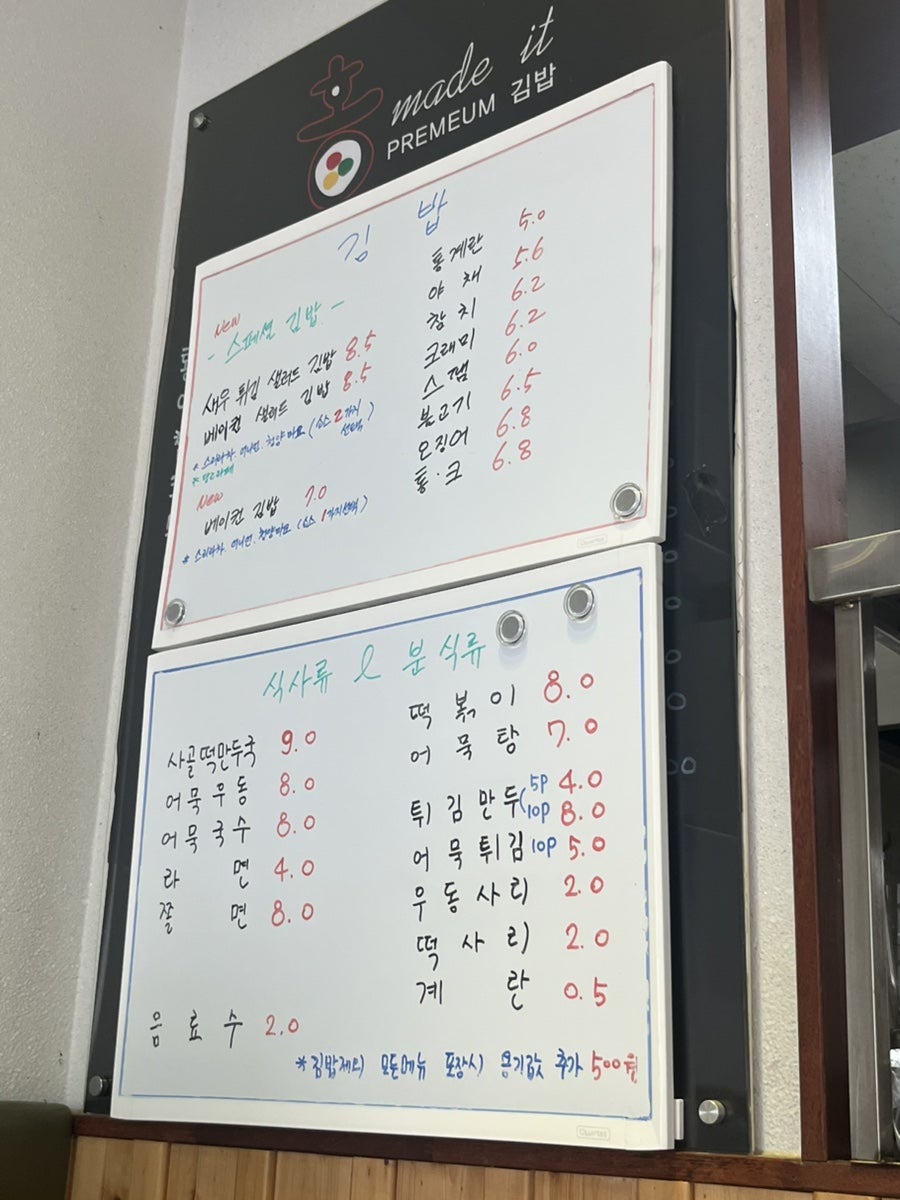 홍
made it
PREMEUM 김밥
김 밥
New
- 스페셜 김밥 -
새우 튀김 샐러드 김밥 8.5
베이컨 샐러드 김밥 8.5
* 스리라차. 어니언. 청양마요 (소스 2가지
선택)
New
베이컨 김밥 7.0
* 스리라차. 어니언. 청양마요 (소스 1가지선택)
통계란 5.0
야채 5.6
참치 6.2
크래미 6.2
스팸 6.0
불고기 6.5
오징어 6.8
통.크 6.8
식사류 & 분식류
사골떡만두국 9.0
어묵우동 8.0
어묵국수 8.0
라면 4.0
쫄면 8.0
음료수 2.0
떡볶이 8.0
어묵탕 7.0
튀김만두 ( 5P 4.0
10P 8.0
어묵튀김 10P 5.0
우동사리 2.0
떡사리 2.0
계란 0.5
*김밥제외 모든메뉴 포장시 용기값 추가 500원
Quartet